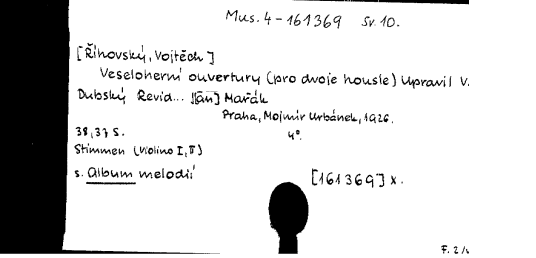 Mus. 4-161369 Sv. 10.
[Říhovský, Vojtěch]
Veseloherní ouvertury (pro dvoje housle) upravil V.
Dubský Revid... J[an] Mařák
Praha, Mojmír Urbánek, 1926.
38, 37 S. 4°.
Stimmen (Violino I, II)
s. Album melodií
[161369] x.